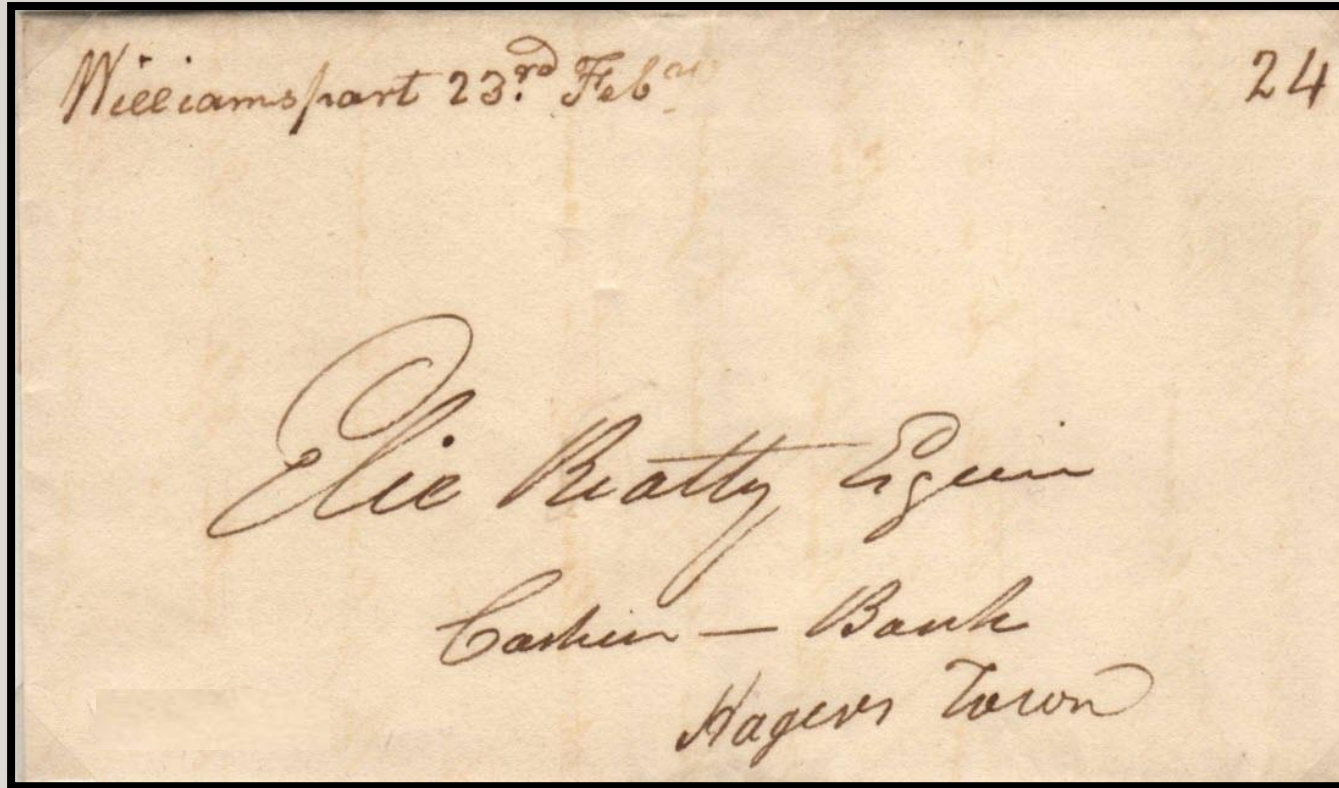 Williamsport 23.rd Feb 24
Elie Beatty Esquire
Cashier — Bank
Hagers Town